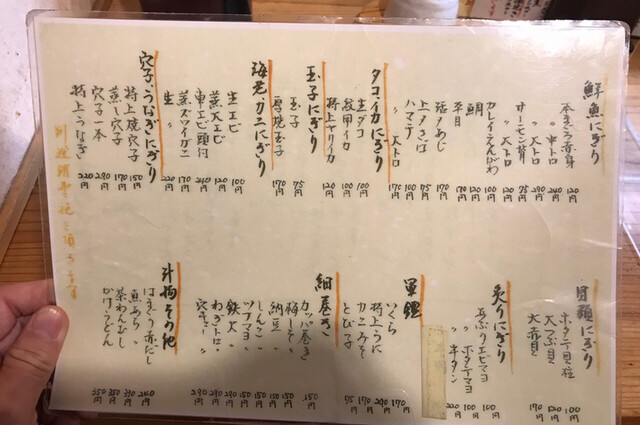 鮮魚にぎり
本まぐろ赤身 120円
〃 中トロ 240円
〃 大トロ 290円
サーモン 95円
〃 大トロ 120円
カレイえんがわ 100円
鯛 120円
平目 180円
活〆あじ 170円
上〆さば 95円
ハマチ 100円
〃 大トロ 170円
タコイカにぎり
生ダコ 100円
紋甲イカ 100円
特上ヤリイカ 120円
玉子にぎり
玉子 75円
厚焼玉子 170円
海老カニにぎり
生エビ 100円
蒸大エビ 120円
車エビ頭付 240円
蒸ズワイガニ 170円
生 〃 220円
穴子うなぎにぎり
特上焼穴子 150円
蒸し穴子 170円
穴子一本 290円
特上うなぎ 220円
別途消費税を頂きます
貝類にぎり
ホタテ貝柱 100円
大つぶ貝 120円
大赤貝 170円
炙りにぎり
あぶりエビマヨ 100円
〃 ホタテマヨ 100円
〃 牛タン 220円
軍艦
いくら 170円
特上うに 290円
カニみそ 170円
とび子 95円
細巻き
カッパ巻き 150円
梅しそ 〃
納豆 〃 150円
しんこ 〃 150円
ツナマヨ 〃 150円
鉄火 〃 290円
ねぎとろ 〃 290円
穴キュー 〃 290円
汁物その他
はまぐり赤だし 240円
魚あら 〃
茶わんむし 350円
かけうどん 350円